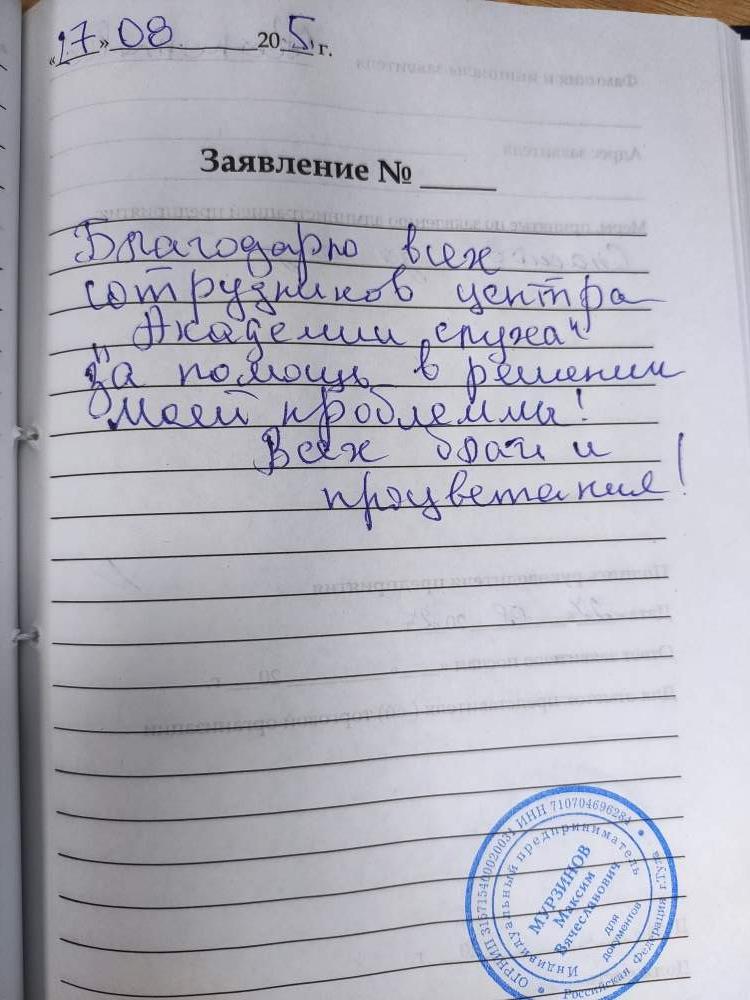 «17» 08 20 5 г.
Заявление № ____
Благодарю всех
сотрудников центра
"Академии слуха"
за помощь в решении
моей проблеммы!
Всех благ и
процветания!
ОГРНИП 315715400020031 ИНН 710704696284
Российская Федерация г.Тула
Индивидуальный предприниматель
МУРЗИНОВ
Максим
Вячеславович
для
документов